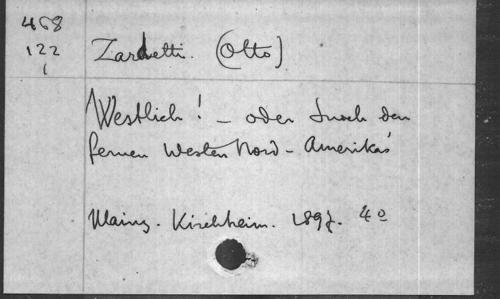 468
122
1
Zardetti. (Otto)
Westlich! — oder durch den
fernen Westen Nord-Amerikas
Mainz. Kirchheim. 1897. 4º